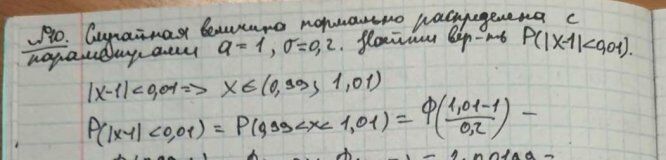 №10. Случайная величина нормально распределена с
параметрами a = 1, σ = 0,2. Найти вер-ть P(|X-1|<0,01).
|X-1| < 0,01 => X ∈ (0,99; 1,01)
P(|X-1| < 0,01) = P(0,99 < X < 1,01) = Ф((1,01-1)/0,2) -